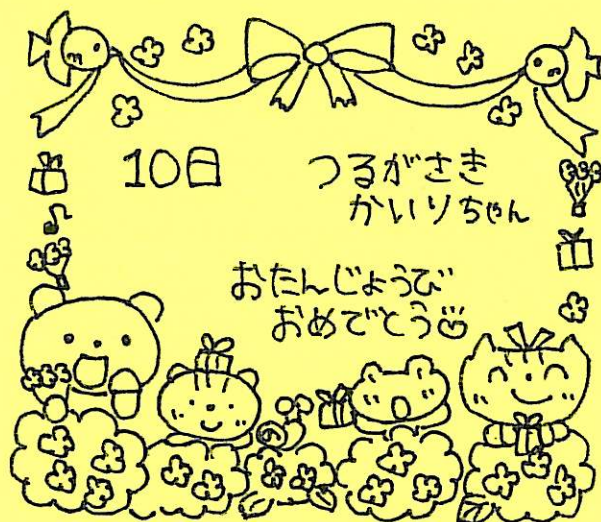 10日
つるがさき
かいりちゃん
おたんじょうび
おめでとう